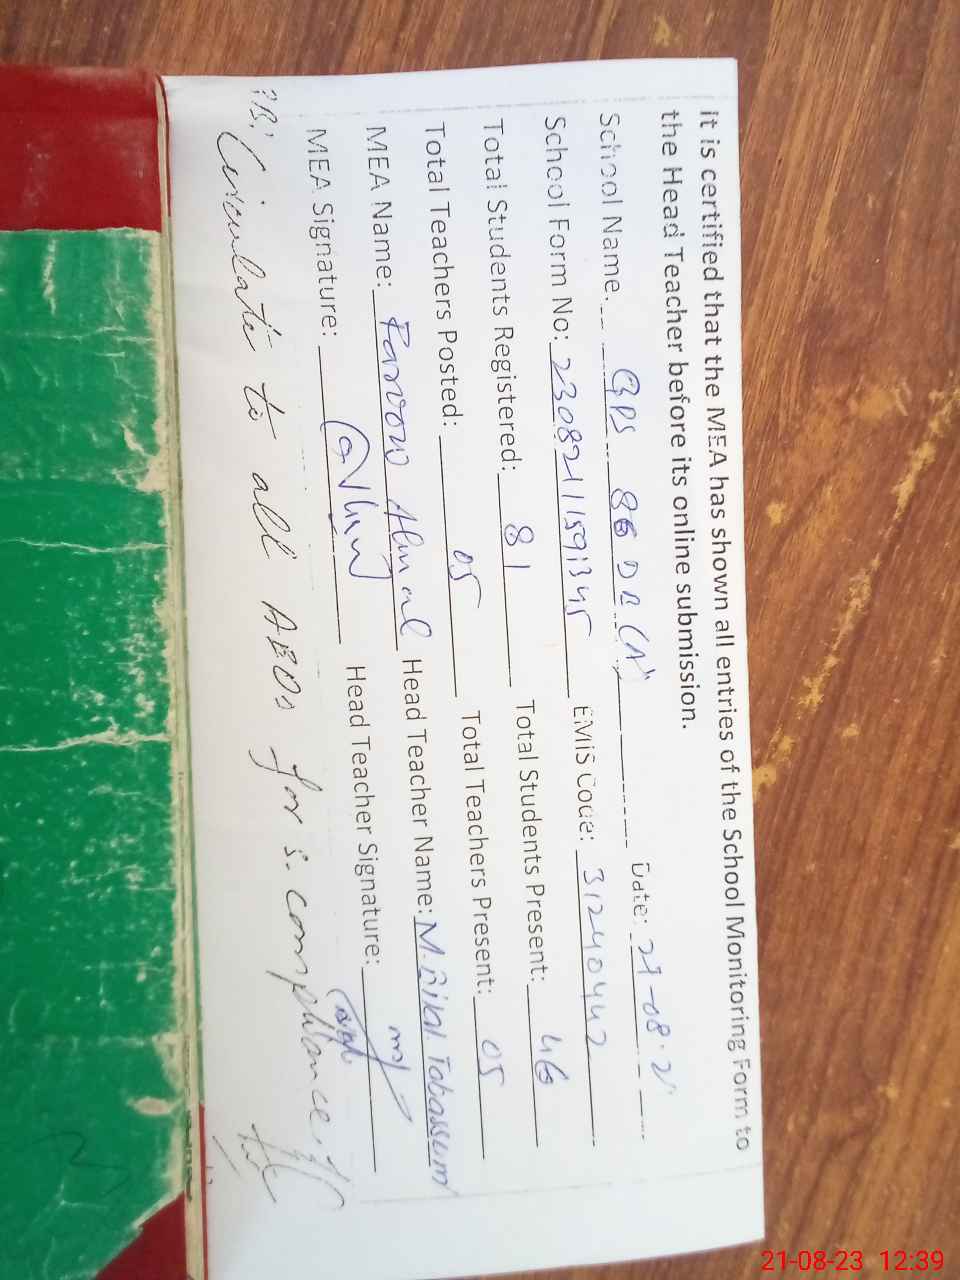 it is certified that the MEA has shown all entries of the School Monitoring Form to
the Head Teacher before its online submission.
School Name. GPS 86 DB (A) Date: 21-08-2
School Form No: 2308211591345 EMIS Code: 31240442
Total Students Registered: 81 Total Students Present: 46
Total Teachers Posted: 05 Total Teachers Present: 05
MEA Name: Head Teacher Name: M. Bilal Tabassum
MEA Signature: Head Teacher Signature:
Circulate to all AEOs for s. compliance.
21-08-23 12:39